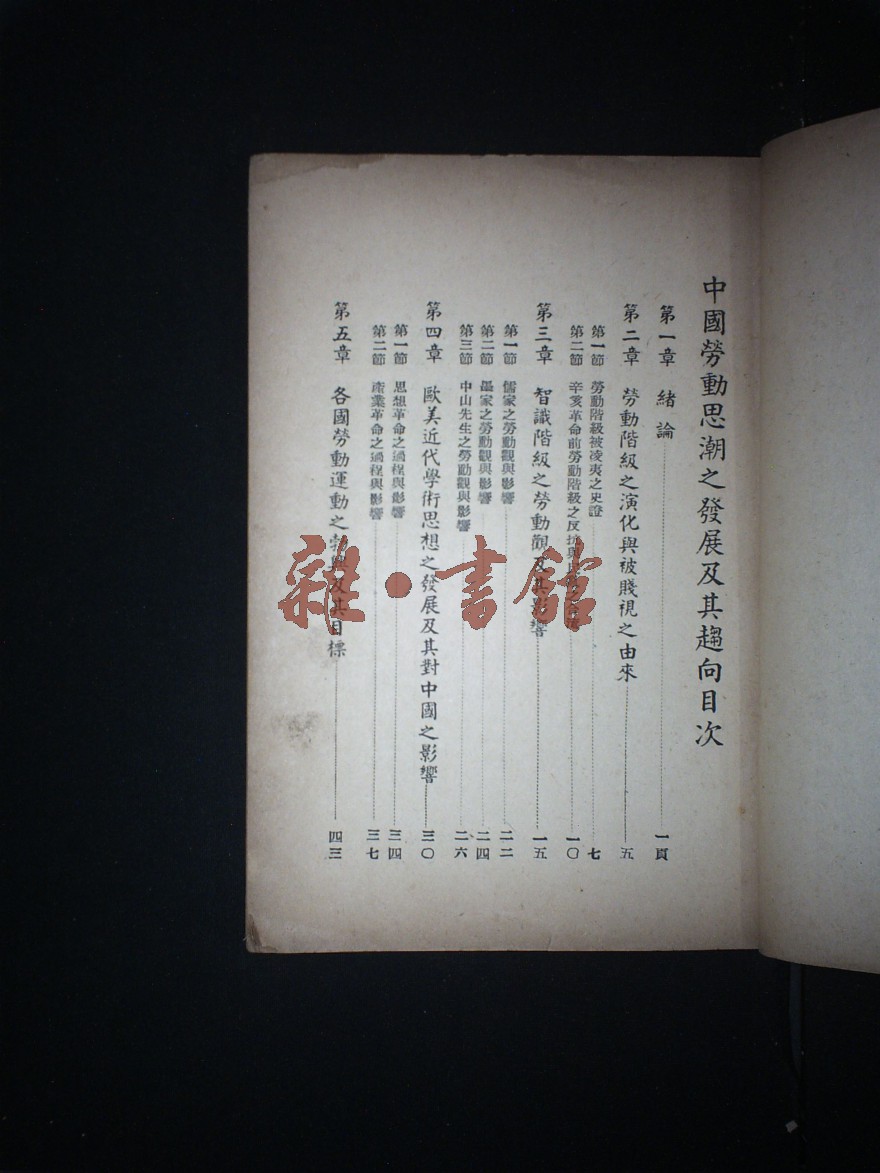 中國勞動思潮之發展及其趨向目次
第一章 緒論 一頁
第二章 勞動階級之演化與被賤視之由來 五
第一節 勞動階級被凌夷之史證 七
第二節 辛亥革命前勞動階級之反抗與 一〇
第三章 智識階級之勞動觀及其影響 一五
第一節 儒家之勞動觀與影響 二二
第二節 墨家之勞動觀與影響 二四
第三節 中山先生之勞動觀與影響 二六
第四章 歐美近代學術思想之發展及其對中國之影響 三〇
第一節 思想革命之過程與影響 三四
第二節 產業革命之過程與影響 三七
第五章 各國勞動運動之勃興及其目標 四三
雜·書館